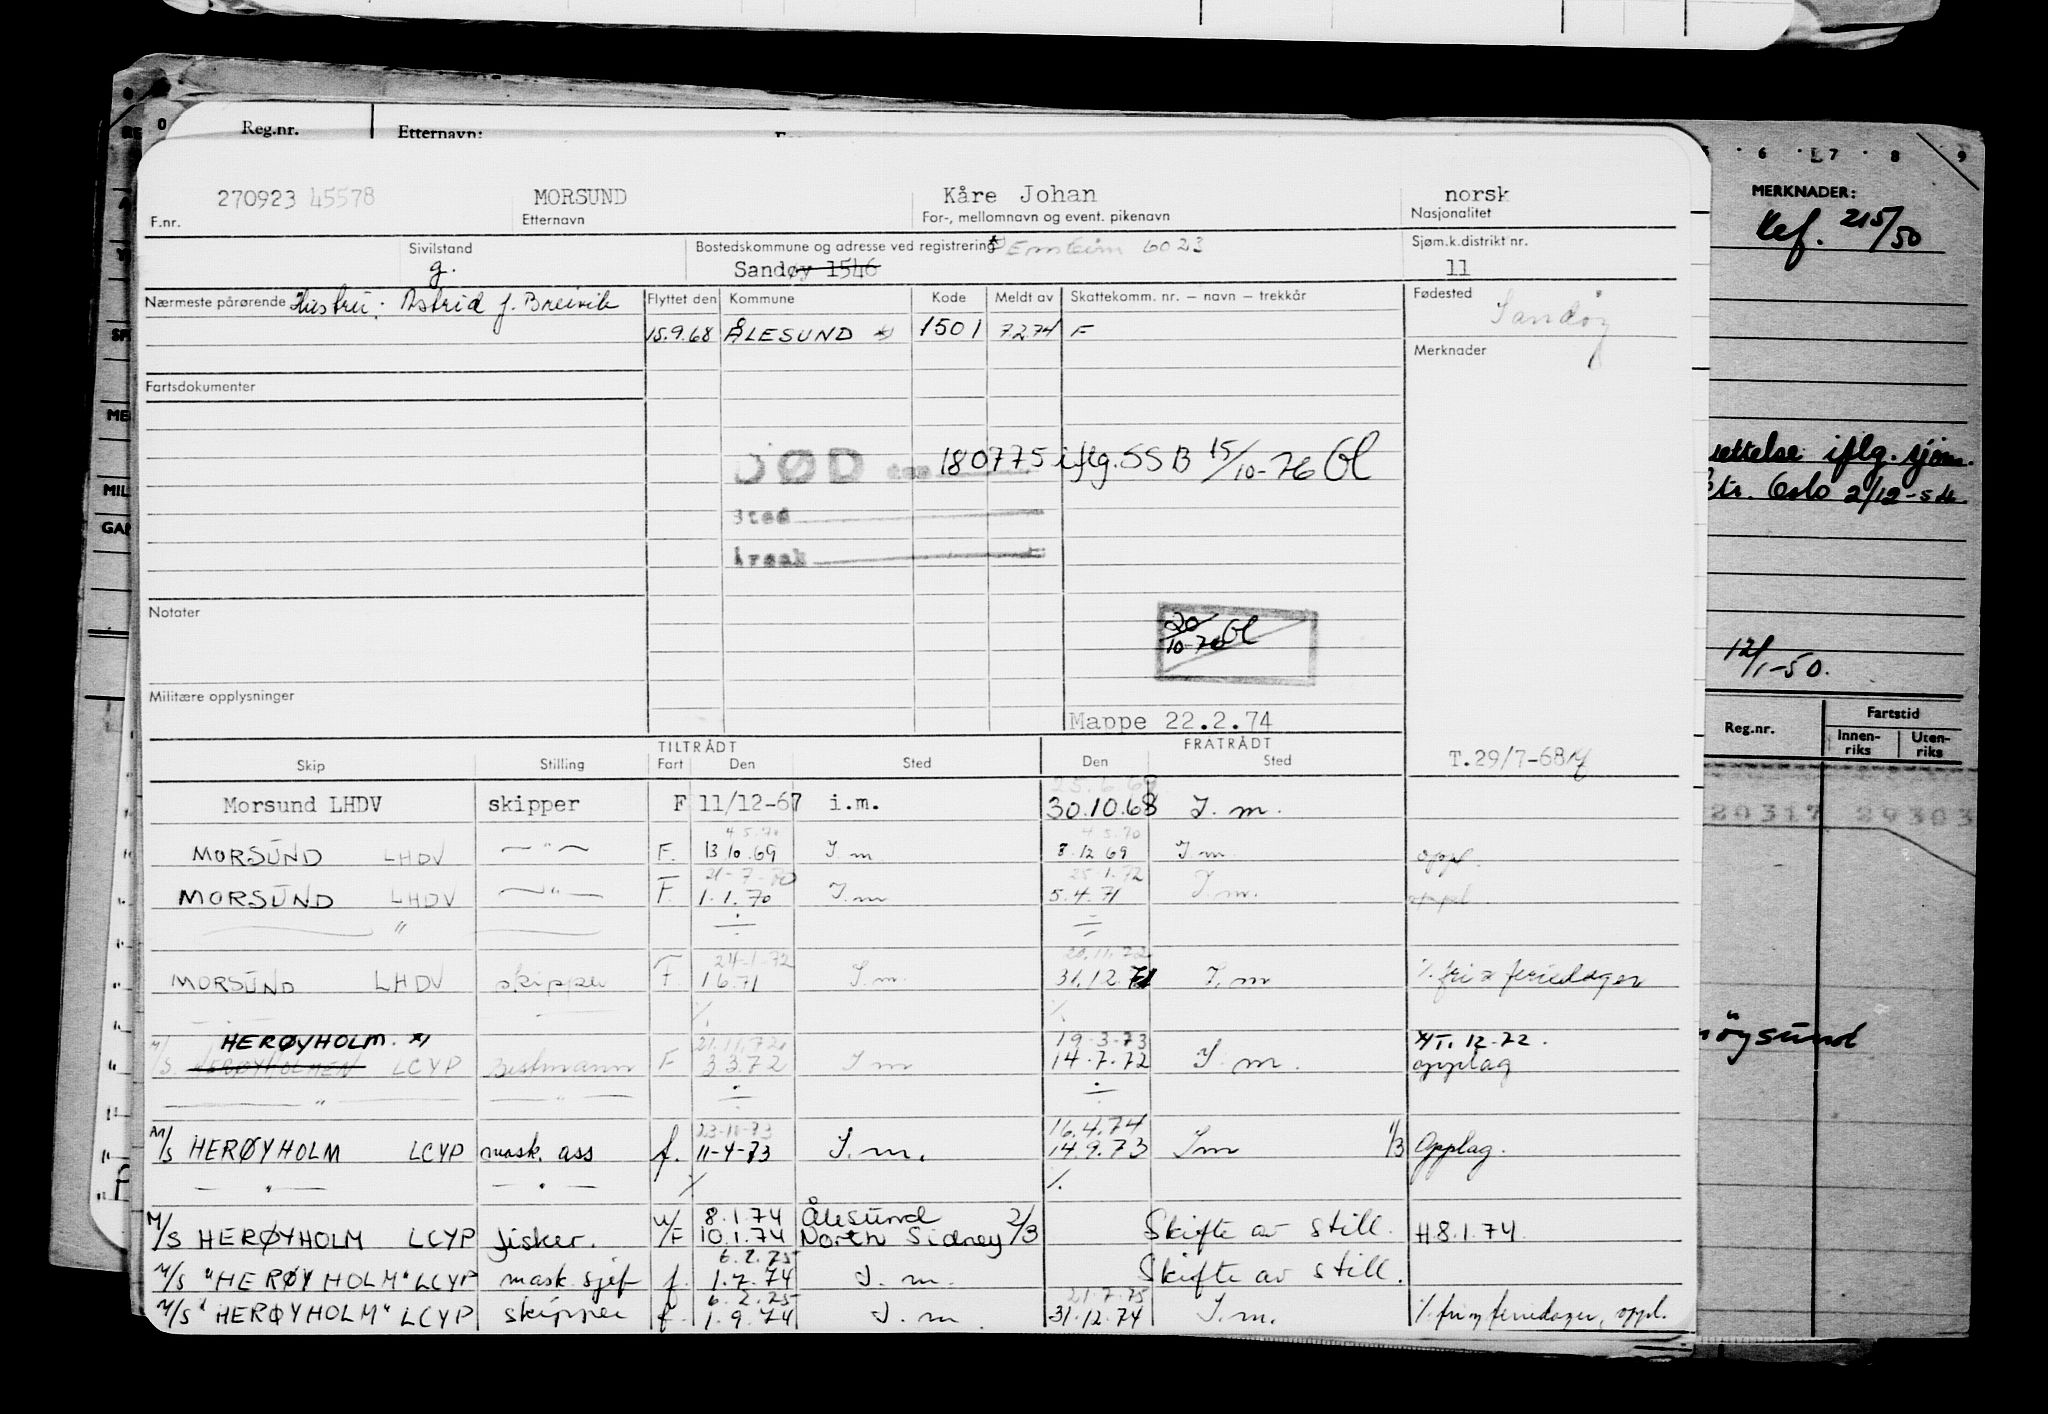 Reg.nr. Etternavn:
6 7 8 9
MERKNADER:
Ref. 215/50
270923 45578 MORSUND Kåre Johan norsk
F.nr. Etternavn For-, mellomnavn og event. pikenavn Nasjonalitet
Sivilstand Bostedskommune og adresse ved registrering 6023 Sjøm.k.distrikt nr.
g. Sandøy 1546 11
Nærmeste pårørende Hustru: Astrid f. Breivik Flyttet den Kommune Kode Meldt av Skattekomm. nr. – navn – trekkår Fødested Sandøy
15.9.68 ÅLESUND 1501 7.2.74 F
Merknader
Fartsdokumenter
DØD den 180775 iflg. SSB 15/10-76 Gl
Sted
Årsak
settelse iflg. sjøm.
Oslo 2/12-54
Notater
20/10-76 Gl
12/1-50.
Militære opplysninger
Mappe 22.2.74
Reg.nr. Fartstid
Innenriks Utenriks
TILTRÅDT FRATRÅDT
Skip Stilling Fart Den Sted Den Sted T.29/7-68
25.6.69
Morsund LHDV skipper F 11/12-67 i.m. 30.10.68 I.m.
20317 29303
4.5.70 4.5.70
MORSUND LHDV —"— F. 13.10.69 I m 8.12.69 I m. oppl.
21-7-70 25.1.72
MORSUND LHDV —"— F. 1.1.70 I.m 5.4.71 I.m. oppl.
— " — ÷ ÷
24-1-72 20.11.72
MORSUND LHDV skipper F. 1.6.71 I.m. 31.12.71 I.m % fri & feriedager
% %
øysund
HERØYHOLM. *) 21.11.72 19-3-73 HT. 12-72.
M/S HERØYHOLMEN LCYP Bestmann F 3.3.72 I m 14.7.72 I.m. opplag
— " — — " — ÷ ÷
23-11-73 16.4.74
M/S HERØYHOLM LCYP mask. ass f. 11-4-73 I.m. 14.9.73 I m 1/3 Opplag.
— " — — " — % %
u/ 8.1.74 Ålesund 2/3
M/S HERØYHOLM LCYP fisker. /F 10.1.74 North Sidney 2/3 Skifte av still. H8.1.74
6.2.75
M/S "HERØYHOLM" LCYP mask.sjef f. 1.7.74 I.m. Skifte av still.
6.2.75 21.7.75
M/S "HERØYHOLM" LCYP skipper f. 1.9.74 I.m. 31.12.74 I.m. % fri og feriedager, oppl.